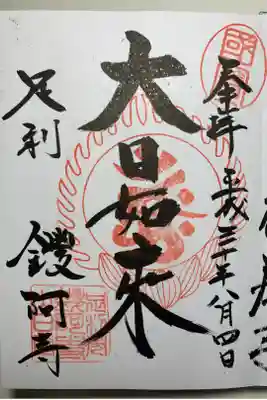 國寶
奉拝 平成三十年八月四日
大日如来
足利 鑁阿寺